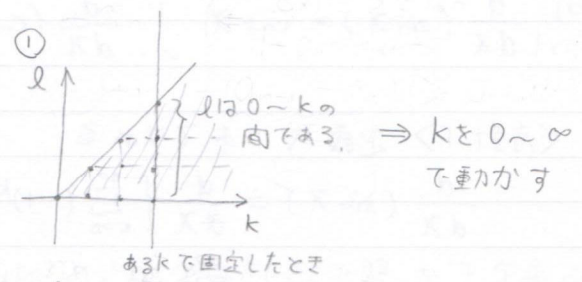 ①
l
lは0～kの
間である。
⇒ kを0～∞
で動かす
k
あるkで固定したとき